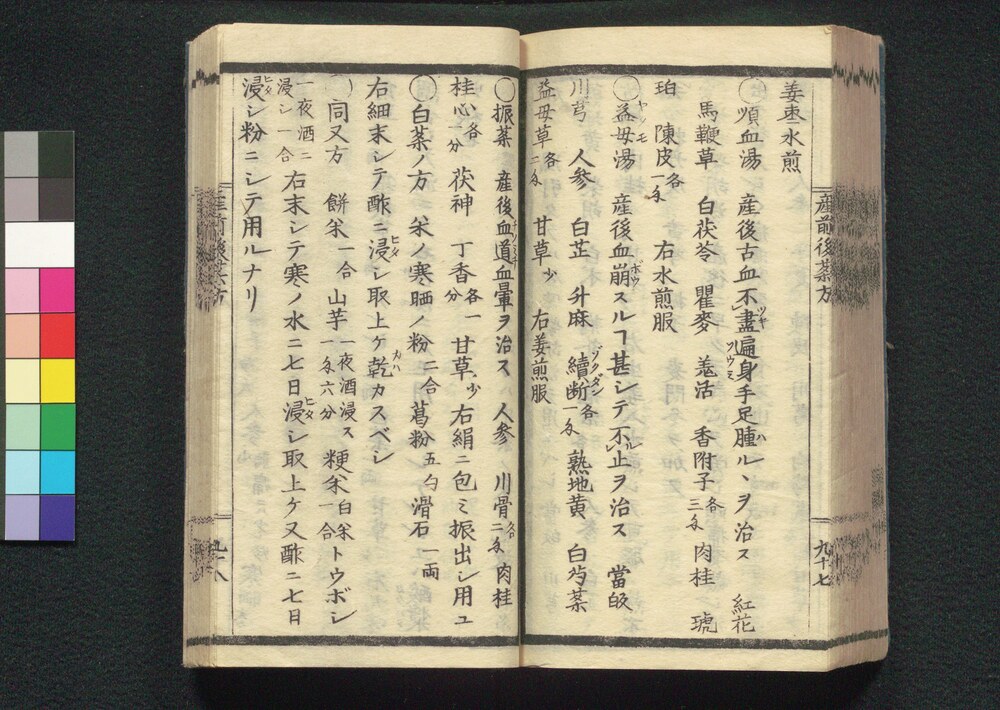 姜棗水煎
○順血湯　産後古血不盡遍身手足腫ルヽヲ治ス　紅花
馬鞭草　白茯苓　瞿麥　羗活　香附子各三匁　肉桂　琥
珀　陳皮各一匁　右水煎服
○益母湯　産後血崩スルヿ甚シテ不止ヲ治ス　當皈
川芎　人参　白芷　升麻　續断各一匁　熟地黄　白芍薬
益母草各二匁　甘草少　右姜煎服
産前後薬方
九十七
○振薬　産後血道血暈ヲ治ス　人参　川骨各二匁　肉桂
桂心各一分　茯神　丁香各一分　甘草少　右絹ニ包ミ振出シ用ユ
○白茶ノ方　米ノ寒晒ノ粉二合　葛粉五勺　滑石一両
右細末シテ酢ニ浸シ取上ケ乾カスベシ
同又方　餅米一合　山芋一匁六分　一夜酒浸ス　粳米一合　白米トウボシ
一夜酒ニ浸シ一合　右末シテ寒ノ水ニ七日浸シ取上ケ又酢ニ七日
浸シ粉ニシテ用ルナリ
産前後薬方
九十八